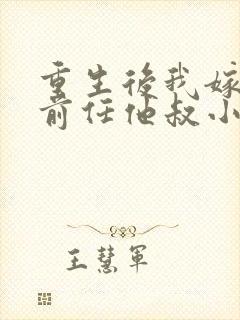 重生後我嫁
前任他叔小
王慧軍